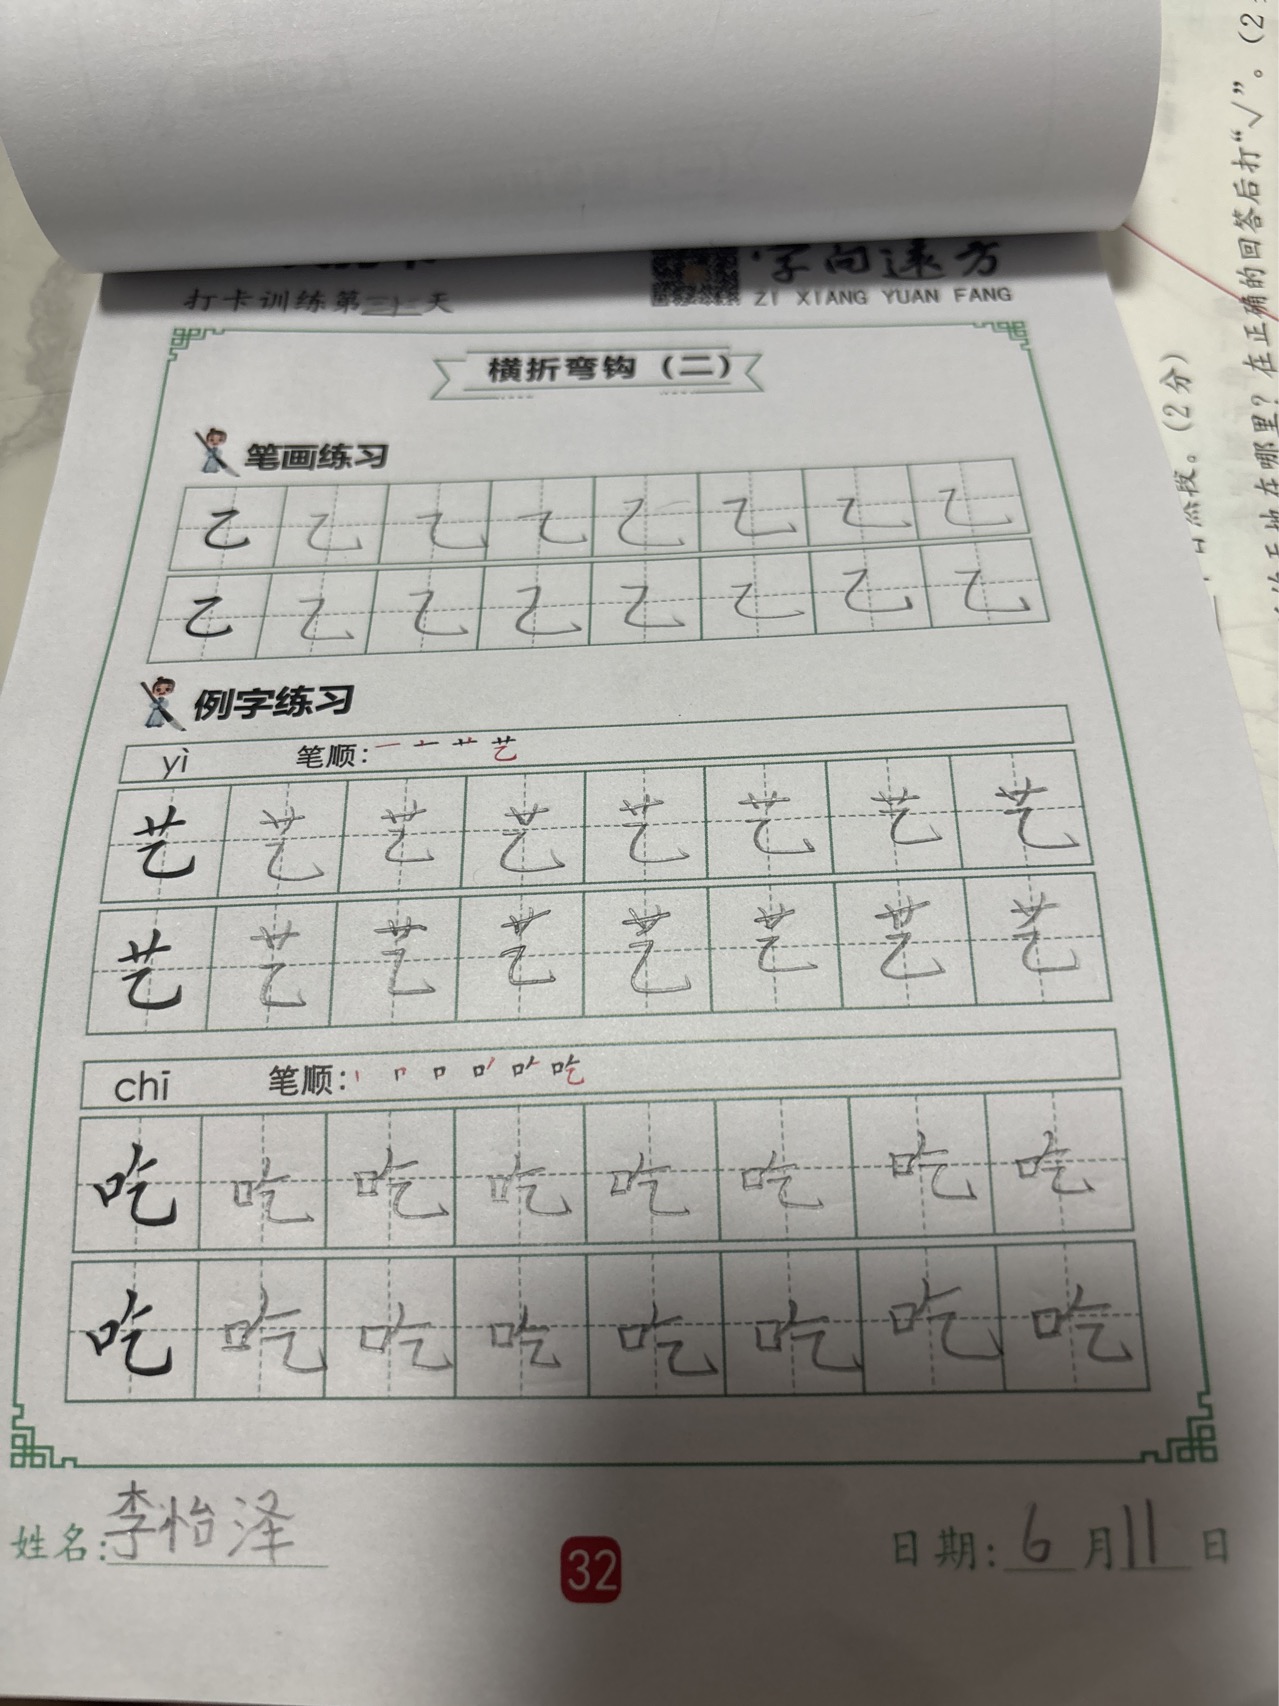 打卡训练第三十二天
字向远方
ZI XIANG YUAN FANG
横折弯钩（二）
笔画练习
乙 乙 乙 乙 乙 乙 乙 乙
乙 乙 乙 乙 乙 乙 乙 乙
例字练习
yì 笔顺：一 艹 艺
艺 艺 艺 艺 艺 艺 艺 艺
艺 艺 艺 艺 艺 艺 艺 艺
chī 笔顺：丨 口 吃
吃 吃 吃 吃 吃 吃 吃 吃
吃 吃 吃 吃 吃 吃 吃 吃
姓名：李怡泽
32
日期：6月11日
段。（2分）
在哪里？在正确的回答后打“√”。（2